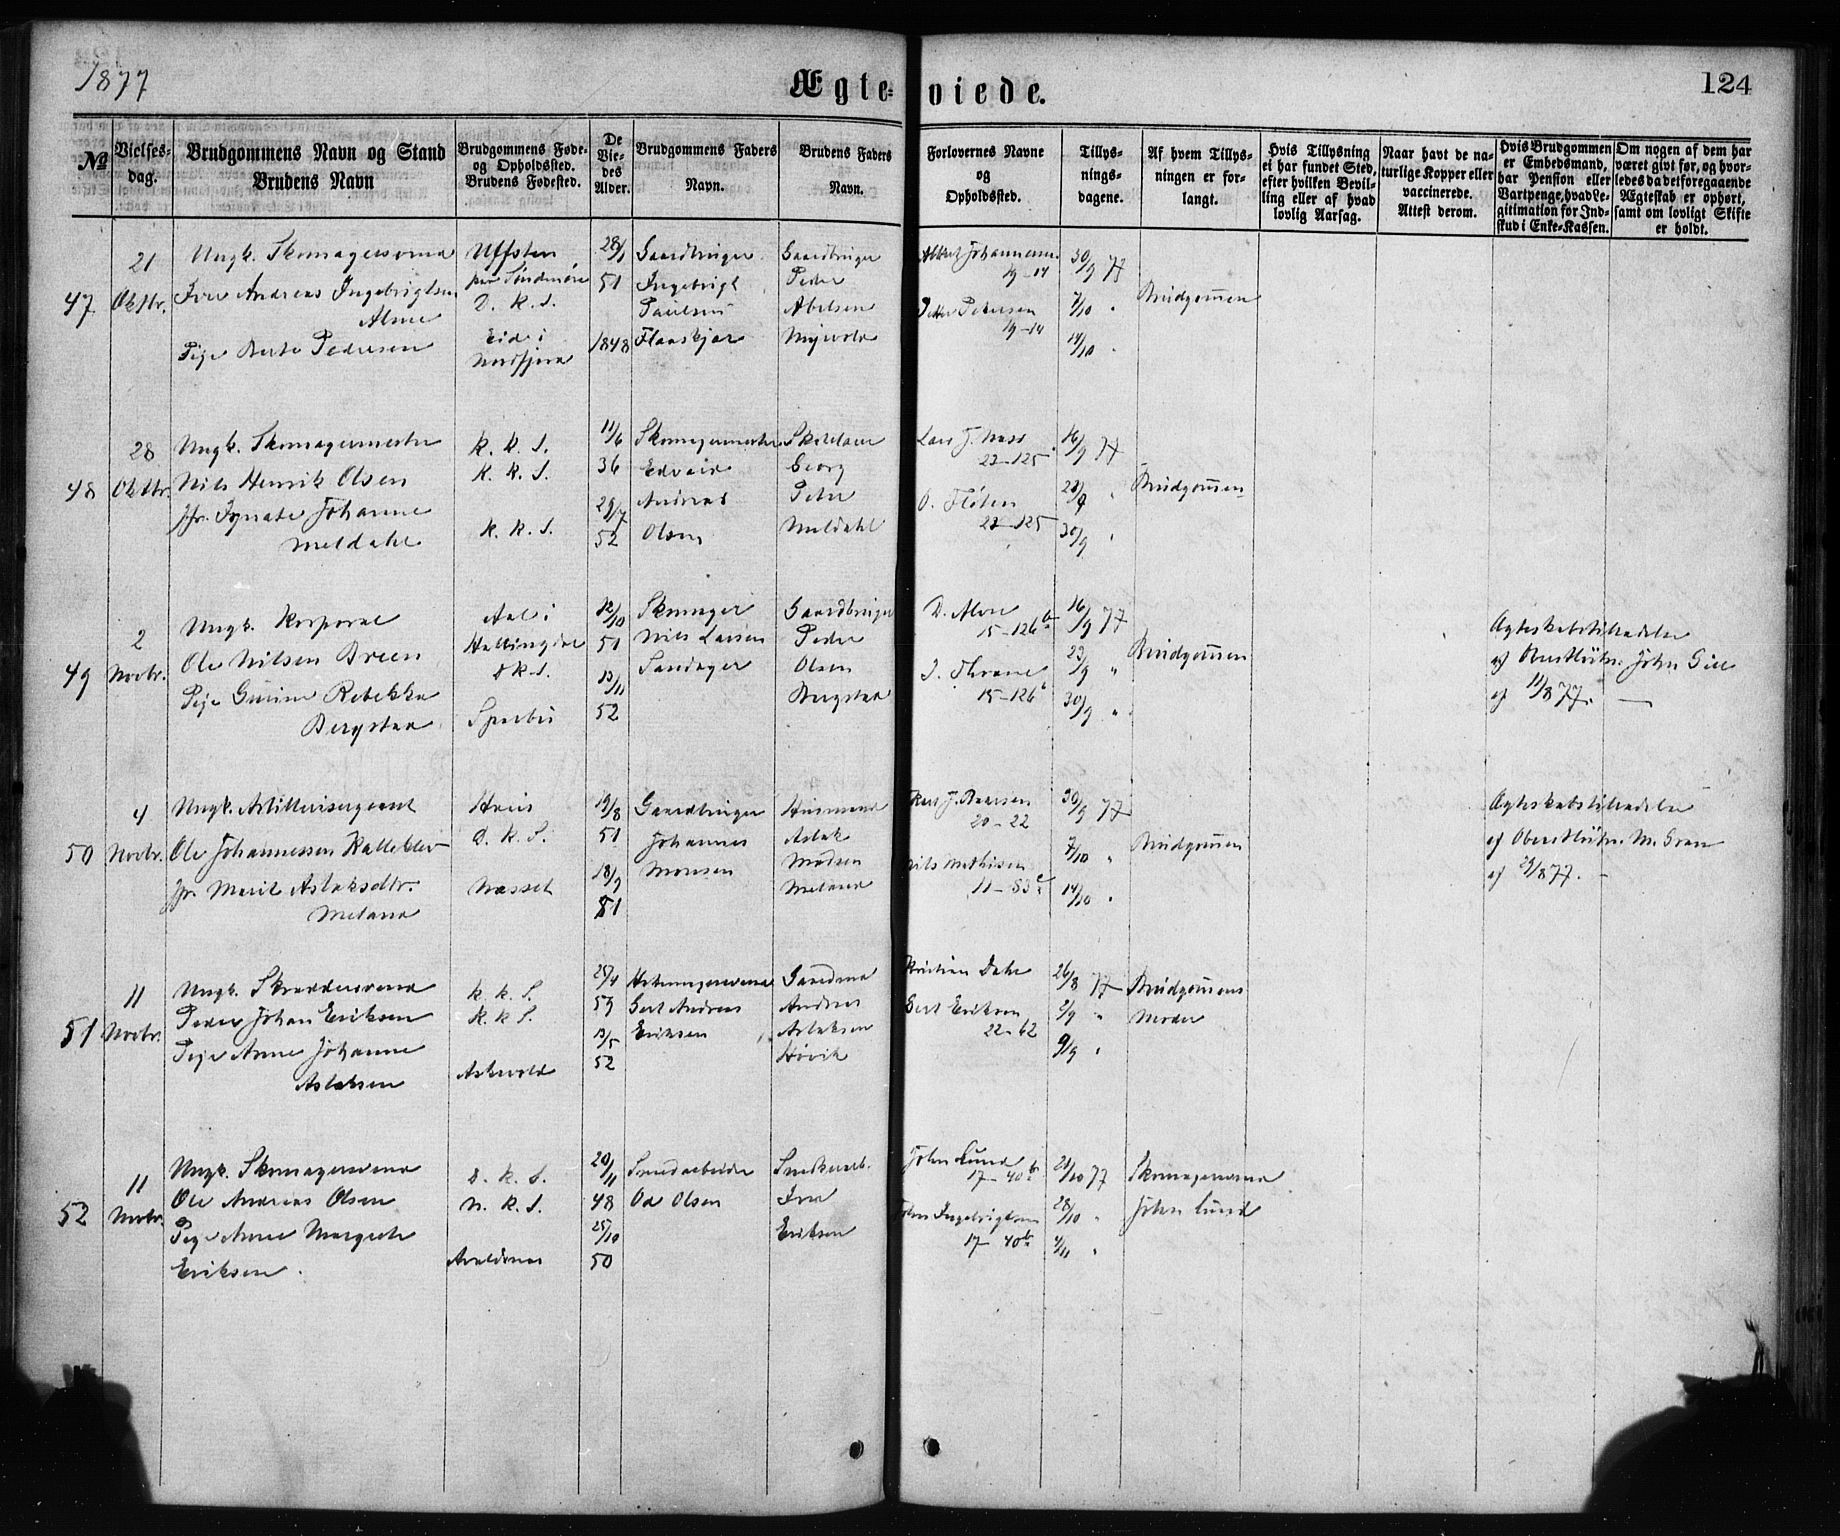 1877
Ægteviede.
124
No
Vielsesdag.
Brudgommens Navn og Stand
Brudens Navn
Brudgommens Føde- og Opholdssted.
Brudens Fødested.
De Viedes Alder.
Brudgommens Faders Navn.
Brudens Faders Navn.
Forlovernes Navne og Opholdssted.
Tillysningsdagene.
Af hvem Tillysningen er forlangt.
Hvis Tillysning ei har fundet Sted, efter hvilken Bevilling eller af hvad lovlig Aarsag.
Naar havt de naturlige Kopper eller vaccinerede. Attest derom.
Hvis Brudgommen er Embedsmand, har Pension eller Vartpenge, hvad Legitimation for Indskud i Enke-Kassen.
Om nogen af dem har været givt før, og hvorledes da det foregaaende Ægteskab er ophørt, samt om lovligt Skifte er holdt.
47
21 Oktbr.
Ungk. Skomagersvend
Iver Andreas Ingebrigtsen
Alme
Pige Berte Pedersen
D. K. S.
Eid i
Nordfjord
28/1
51
1848
Gaardbruger
Ingebrigt
Paulsen
Flaaskjær
Gaardbruger
Peder
Abelsen
Myrvold
Albert Johannesen
19-14
Petter Petersen
19-14
30/9 77
7/10 "
14/10 "
Brudgommen
48
28 Oktbr.
Ungk. Skomagermester
Nils Henrik Olsen
Jfr. Johanne
Meldahl
K. K. S.
K. K. S.
K. K. S.
11/6
36
29/7
52
Skomagermester
Edvard
Andreas
Olsen
Georg
Peter
Meldahl
Lars J. Næss
22-125
O. Fløten
22-125
16/9 77
23/9 "
30/9 "
Brudgommen
49
2 Novbr.
Ungk. Korporal
Ole Nilsen Breen
Pige Gurine Rebekka
Bergstad
Aal i
Hallingdal
D K S.
Sparbu
12/10
51
13/11
52
Skomager
Nils Larsen
Gaardbruger
Peder
Olsen
Bergstad
15-126 b
J. Thrane
15-126 b
16/9 77
23/9 "
30/9 "
Brudgommen
Ægteskabstilladelse
af Oberstløitn. John Gill
af 11/8 77. —
50
4 Novbr.
Ungk. Artillerisergeant
Ole Johannessen Kalleklev
Jfr. Marit Aslaksdtr.
Meland
Hosanger
D. K. S.
Næsset
19/8
51
18/9
51
Gaardbruger
Johannes
Monsen
Husmand
Aslak
Madsen
Meland
20-22
Nils Mathisen
11-83 c
30/9 77
7/10 "
14/10 "
Brudgommen
Ægteskabstilladelse
af Oberstløitn. M. Gran
af 29/8 77. —
51
11 Novbr.
Ungk. Skræddersvend
Peder Johan Eriksen
Pige Anne Johanne
Aslaksen
K. K. S.
K. K. S.
Askevold
25/4
59
13/5
52
Gert Andreas
Eriksen
Gaardmd
Andreas
Aslaksen
Høvik
Kristian Dahl
Gert Eriksen
22-62
26/8 77
2/9 "
9/9 "
Brudgommens
Moder
52
11 Novbr.
Ungk. Skomagersvend
Ole Andreas Olsen
Pige Anne Margrete
Eriksen.
D. K. S.
N. K. S.
Avaldsnes
20/11
48
25/10
50
Smedarbeider
Od Olsen
Snedkerarb.
Iver
Eriksen
John Lund
17-40 b
John Ingebrigtsen
17-40 b
21/10 77
28/10 "
4/11 "
Skomagersvend
John Lund